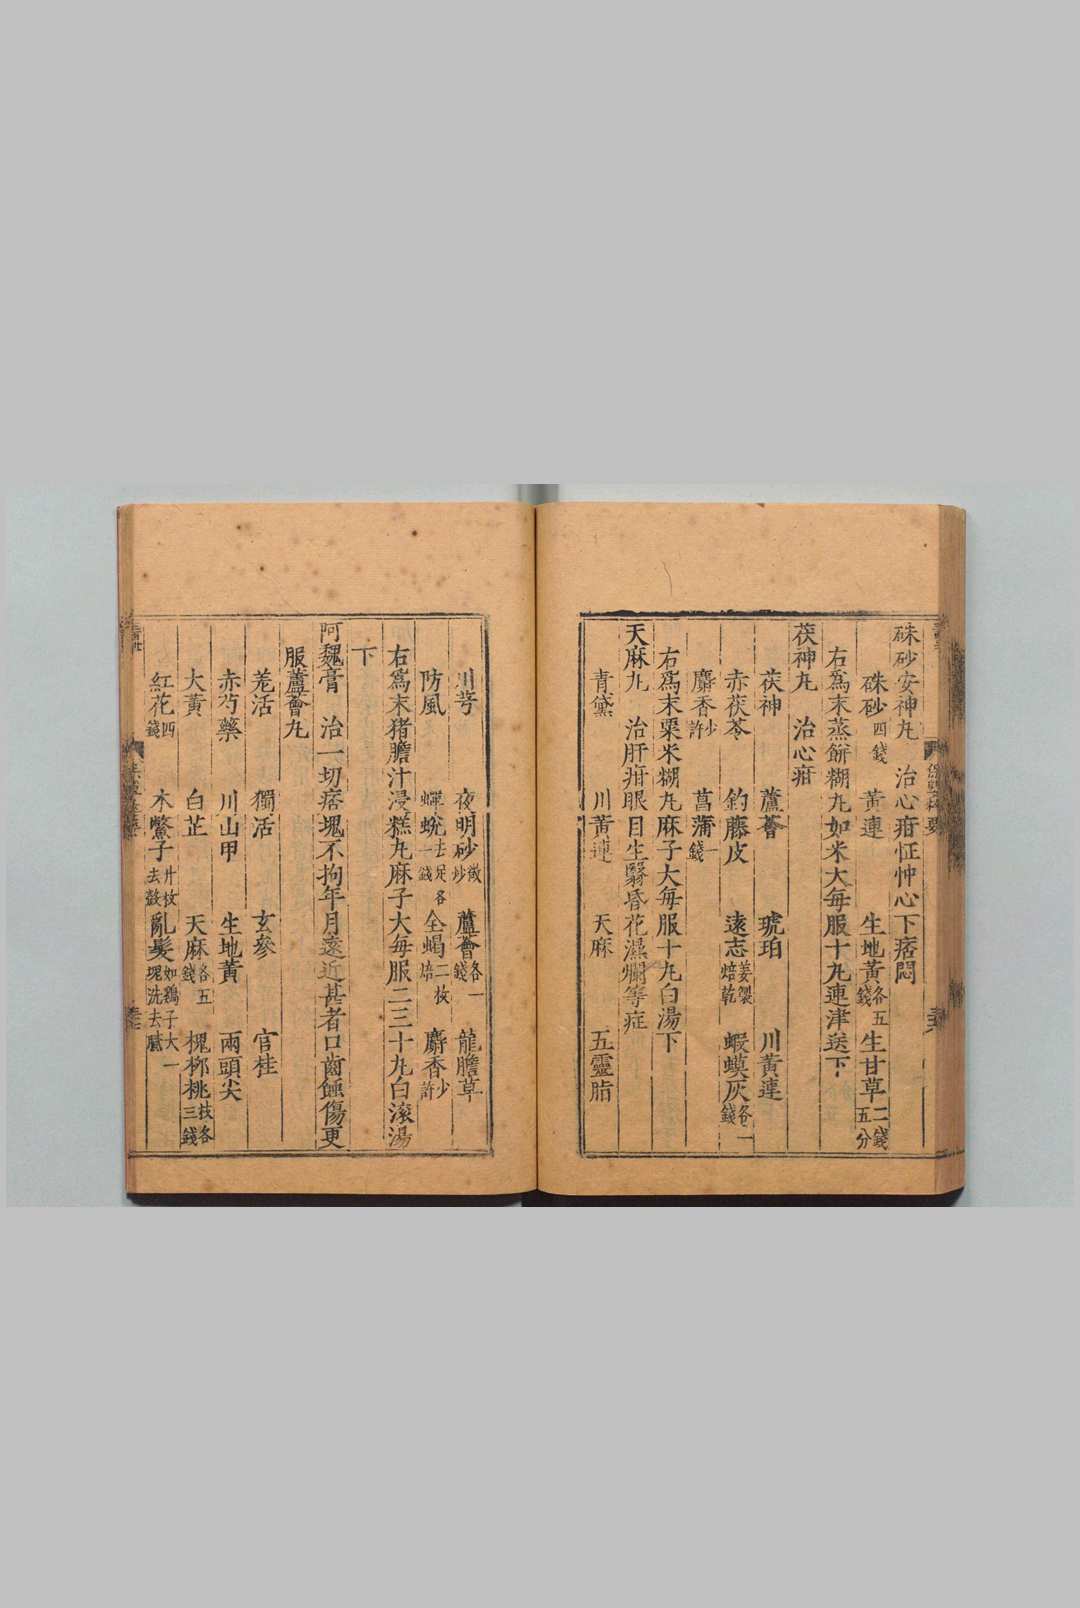 硃砂安神丸　治心疳怔忡心下痞悶
硃砂四錢　黃連　生地黃各五錢　生甘草二錢五分
右爲末蒸餅糊丸如米大每服十九連津送下
茯神丸　治心疳
茯神　蘆薈　琥珀　川黃連
赤茯苓　釣藤皮　遠志姜製焙乾　蝦蟆灰各一錢
麝香少許　菖蒲一錢
右爲末粟米糊丸麻子大每服十九白湯下
天麻丸　治肝疳眼目生翳昏花濕爛等症
青黛　川黃連　天麻　五靈脂
川芎　夜明砂微炒　蘆薈各一錢　龍膽草
防風　蟬蛻去足各一錢　全蝎二枚焙　麝香少許
右爲末猪膽汁浸糕丸麻子大每服二三十丸白滾湯
下
阿魏膏　治一切痞塊不拘年月遠近甚者口齒蝕傷更
服蘆薈丸
羌活　獨活　玄參　官桂
赤芍藥　川山甲　生地黃　兩頭尖
大黃　白芷　天麻各五錢　槐柳桃枝各三錢
紅花四錢　木鱉子廾枚去殼　亂髮如鷄子大一塊洗去膩